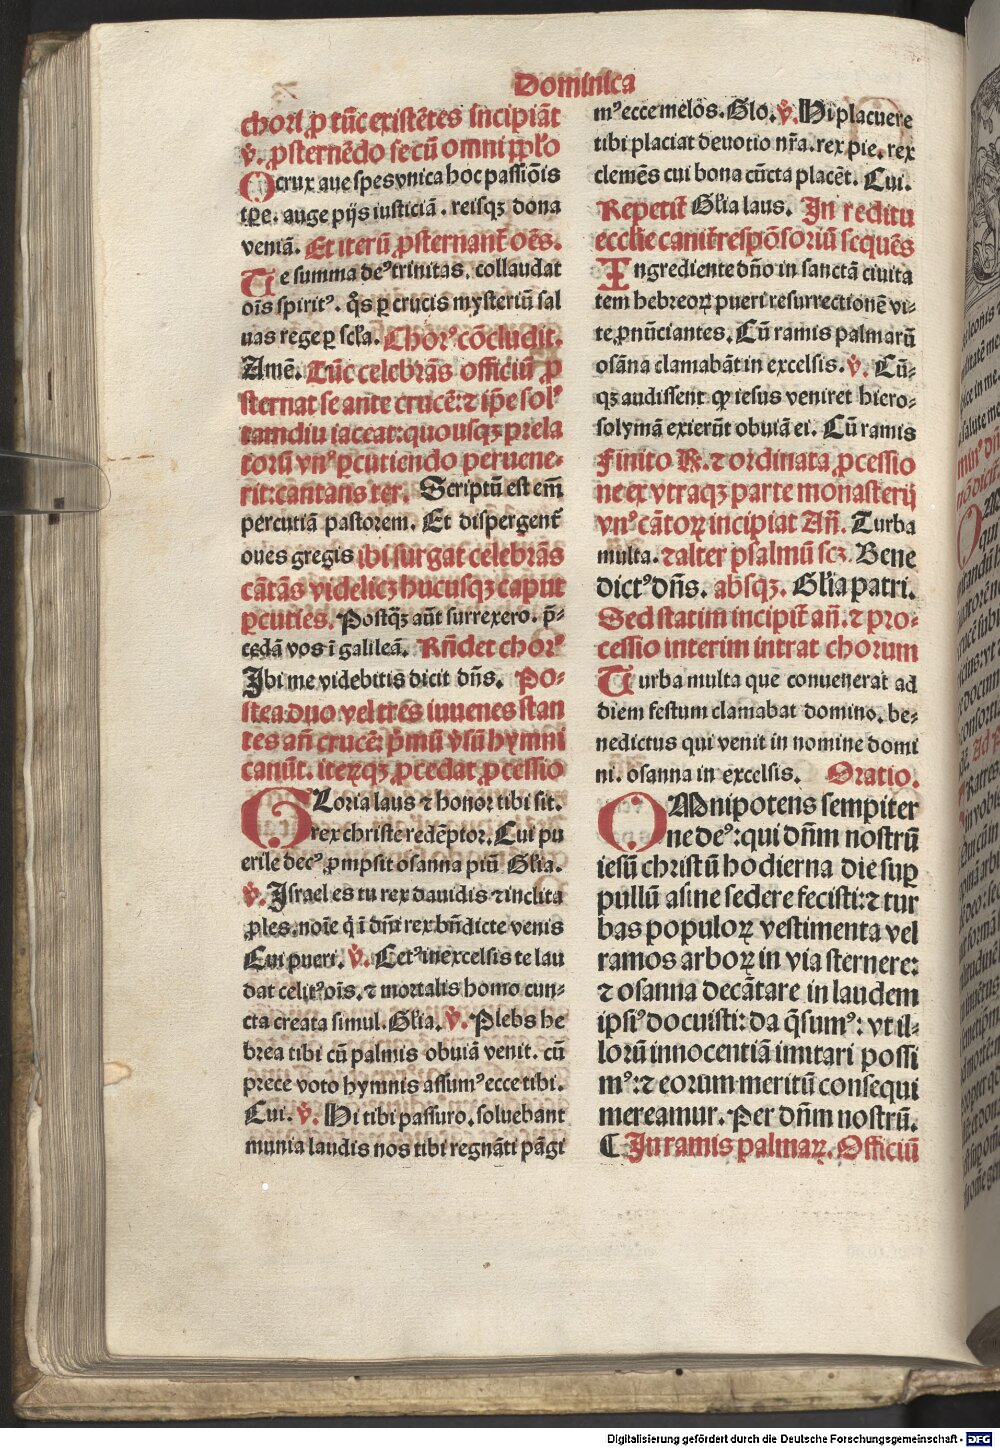 Dominica
chori ꝓ tūc existētes incipiāt
v̄. ꝓsternēdo se cū omni pplo
O crux aue spes vnica hoc passiōis
tꝑe. auge pijs iusticiā. reisqꝫ dona
veniā. Et iterū ꝓsternant̄ oēs.
Te summa deꝰ trinitas. collaudat
oīs spiritꝰ. q̊s ꝑ crucis mysteriū sal
uas rege ꝑ scl̄a. Chorꝰ cōcludit.
Amē. Tūc celebrās officiū ꝓ
sternat se ante crucē: ⁊ ip̄e solꝰ
tamdiu iaceat: quousqꝫ prela
torū vnꝰ ꝑcutiendo peruene-
rit: cantans ter. Scriptū est em̄
percutiā pastorem. Et dispergent̄
oues gregis ibi surgat celebrās
cātās videlicꝫ hucusqꝫ caput
ꝑcuties. Postqꝫ aūt surrexero. p̄-
cedā vos ī galileā. Rn̄det chorꝰ
Ibi me videbitis dicit dn̄s. Po-
stea duo vel tres iuuenes stan
tes an̄ crucē: p̄mū v̄sū hymni
canūt. iteꝝqꝫ ꝓcedat ꝓcessio
GLoria laus ⁊ honor tibi sit.
rex christe redēptor. Cui pu
erile decꝰ ꝓmpsit osanna piū Gl̄ia.
v̄. Israel es tu rex dauidis ⁊ inclita
ꝓles. noīe q̇ ī dn̄i rex bn̄dicte venis
Cui pueri. v̄. Cetꝰ in excelsis te lau
dat celitꝰ oīs. ⁊ mortalis homo cun-
cta creata simul. Gl̄ia. v̄. Plebs he
brea tibi cū palmis obuiā venit. cū
prece voto hymnis assumꝰ ecce tibi.
Cui. v̄. Hi tibi passuro. soluebant
munia laudis nos tibi regnāti pāgi
mꝰ ecce melōs. Glo. v̄. Hi placuere
tibi placiat deuotio nr̄a. rex pie. rex
clemēs cui bona cūcta placēt. Cui.
Repetit̄ Gl̄ia laus. In reditu
ecclie canit̄ respōsoriū seqūes
Ingrediente dn̄o in sanctā ciuita
tem hebreoꝝ pueri resurrectionē vi-
te ꝓnūciantes. Cū ramis palmarū
osāna clamabāt in excelsis. v̄. Cū-
qꝫ audissent qꝙ iesus veniret hiero-
solymā exierūt obuiā ei. Cū ramis
Finito R. ⁊ ordinata ꝓcessio
ne ex vtraqꝫ parte monasterij
vnꝰ cātoꝝ incipiat An̄. Turba
multa. ⁊ alter psalmū scꝫ. Bene
dictꝰ dn̄s. absqꝫ. Gl̄ia patri.
Sed statim incipit̄ an̄. ⁊ pro-
cessio interim intrat chorum
Turba multa que conuenerat ad
diem festum clamabat domino. be-
nedictus qui venit in nomine domi
ni. osanna in excelsis. Oratio.
OMnipotens sempiter
ne deꝰ: qui dn̄m nostrū
iesū christū hodierna die suꝑ
pullū asine sedere fecisti: ⁊ tur
bas populoꝝ vestimenta vel
ramos arboꝝ in via sternere:
⁊ osanna decātare in laudem
ipsiꝰ docuisti: da q̄sumꝰ: vt il-
lorū innocentiā imitari possi
mꝰ: ⁊ eorum meritū consequi
mereamur. Per dn̄m nostrū.
¶ In ramis palmaꝝ. Officiū
Digitalisierung gefördert durch die Deutsche Forschungsgemeinschaft - DFG